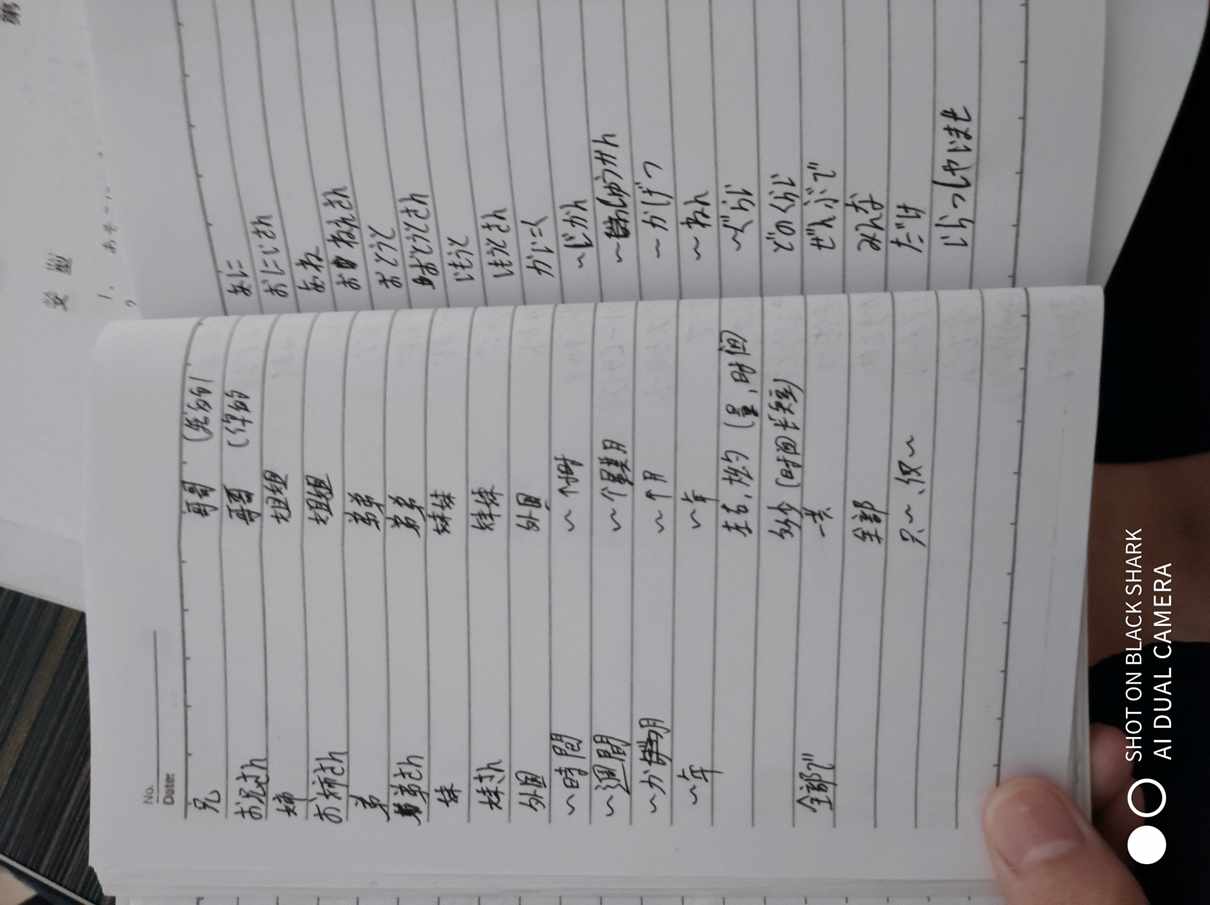 No.
Date:
兄 哥哥 (我的) あに
お兄さん 哥哥 (你的) おにいさん
姉 姐姐 あね
お姉さん 姐姐 おねえさん
弟 弟弟 おとうと
弟さん 弟弟 おとうとさん
妹 妹妹 いもうと
妹さん 妹妹 いもうとさん
外国 外国 がいこく
～時間 ～个小时 ～じかん
～週間 ～个星期 ～しゅうかん
～か月 ～个月 ～かげつ
～年 ～年 ～ねん
左右，大约 (量，时间 ～ぐらい
多久 (时间长短) どのくらい
全部で 一共 ぜんぶで
全部 みんな
只～，仅～ だけ
いらっしゃいませ
SHOT ON BLACK SHARK
AI DUAL CAMERA